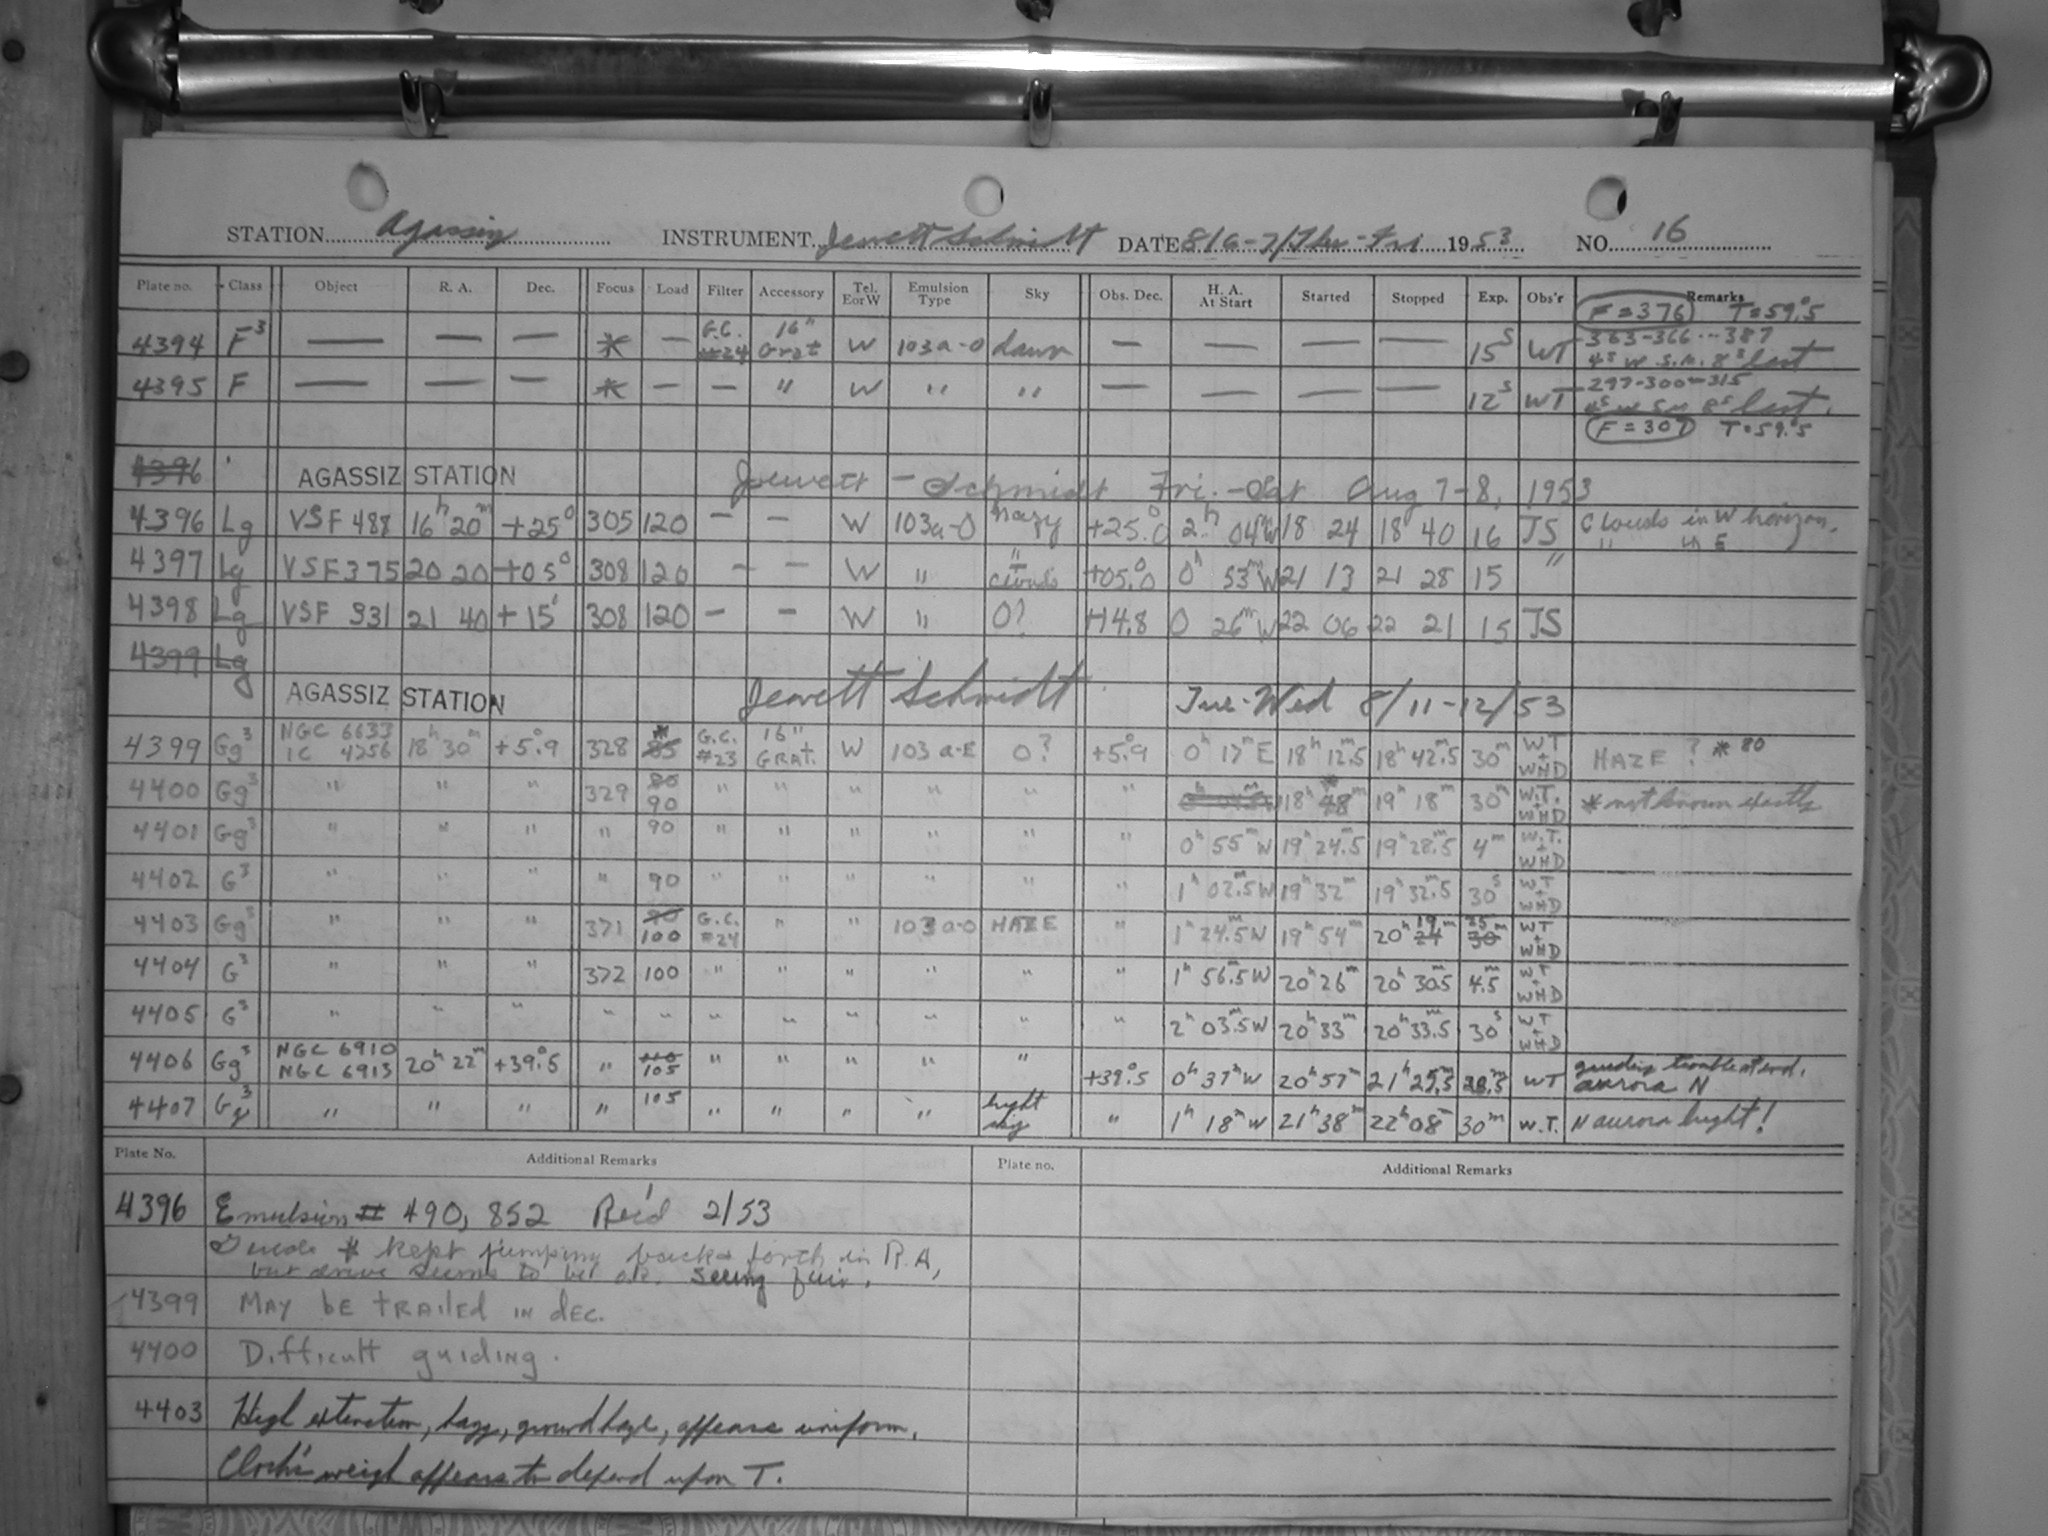 STATION Agassiz INSTRUMENT Jewett Schmidt DATE 8/6-7/Thu-Fri 1953 NO. 16
Plate no. Class Object R. A. Dec. Focus Load Filter Accessory Tel. E or W Emulsion Type Sky Obs. Dec. H. A. At Start Started Stopped Exp. Obs'r Remarks
F = 376 T = 59°.5
4394 F³ — — — * — G.C. #24 16" Grat W 103a-O dawn — — — — 15s WT 363-366...387
4s w. S.M. 8s last
4395 F — — — * — — " W " " — — — — 12s WT 297-300-315
8s last.
F = 307 T = 59°.5
4396
AGASSIZ STATION Jewett - Schmidt Fri. - Sat Aug 7-8, 1953
4396 Lg VSF 488 16h 20m +25° 305 120 — — W 103a-O hazy +25.°0 2h 04mW 18 24 18 40 16 JS Clouds in W horizon,
" in E
4397 Lg VSF 375 20 20 +05° 308 120 — — W " " + clouds +05.°0 0h 53mW 21 13 21 28 15 "
4398 Lg VSF 331 21 40 +15° 308 120 — — W " O? +14.8 0 26mW 22 06 22 21 15 JS
4399 Lg
AGASSIZ STATION Jewett Schmidt Tue-Wed 8/11-12/53
4399 Gg³ NGC 6633 IC 4756 18h 30m +5°.9 328 * 85 G.C. #23 16" GRAT. W 103a-E O? +5°.9 0h 17mE 18h 12m.5 18h 42m.5 30m WT + WHD HAZE ? * 80
4400 Gg³ " " " 329 80 90 " " " " " " 18h 48m * 19h 18m 30m W.T. + WHD * not known exactly
4401 Gg³ " " " " 90 " " " " " " 0h 55mW 19h 24m.5 19h 28m.5 4m W.T. + WHD
4402 G³ " " " " 90 " " " " " " 1h 02m.5W 19h 32m 19h 32m.5 30s WT + WHD
4403 Gg³ " " " 371 90 100 G.C. #24 " " 103a-O HAZE " 1h 24m.5W 19h 54m 20h 19m 24 25 30m WT + WHD
4404 G³ " " " 372 100 " " " " " " 1h 56m.5W 20h 26m 20h 30m.5 4m.5 WT + WHD
4405 G³ " " " " " " " " " " " 2h 03m.5W 20h 33m 20h 33m.5 30s WT + WHD
4406 Gg³ NGC 6910 NGC 6913 20h 22m +39°.5 " 110 105 " " " " " +39°.5 0h 37mW 20h 57m 21h 25m.5 28m.5 WT guiding trouble at end,
aurora N
4407 Gg³ " " " " 105 " " " " bright sky " 1h 18mW 21h 38m 22h 08m 30m W.T. N aurora bright!
Plate No. Additional Remarks Plate no. Additional Remarks
4396 Emulsion # 490,852 Rec'd 2/53
Guide * kept jumping back & forth in R.A,
but drive seems to be o.k. seeing fair.
4399 MAY bE TRAILed IN dEC.
4400 Difficult guiding.
4403 High extinction, hazy, ground haze, appears uniform.
Clock's weight appears to depend upon T.